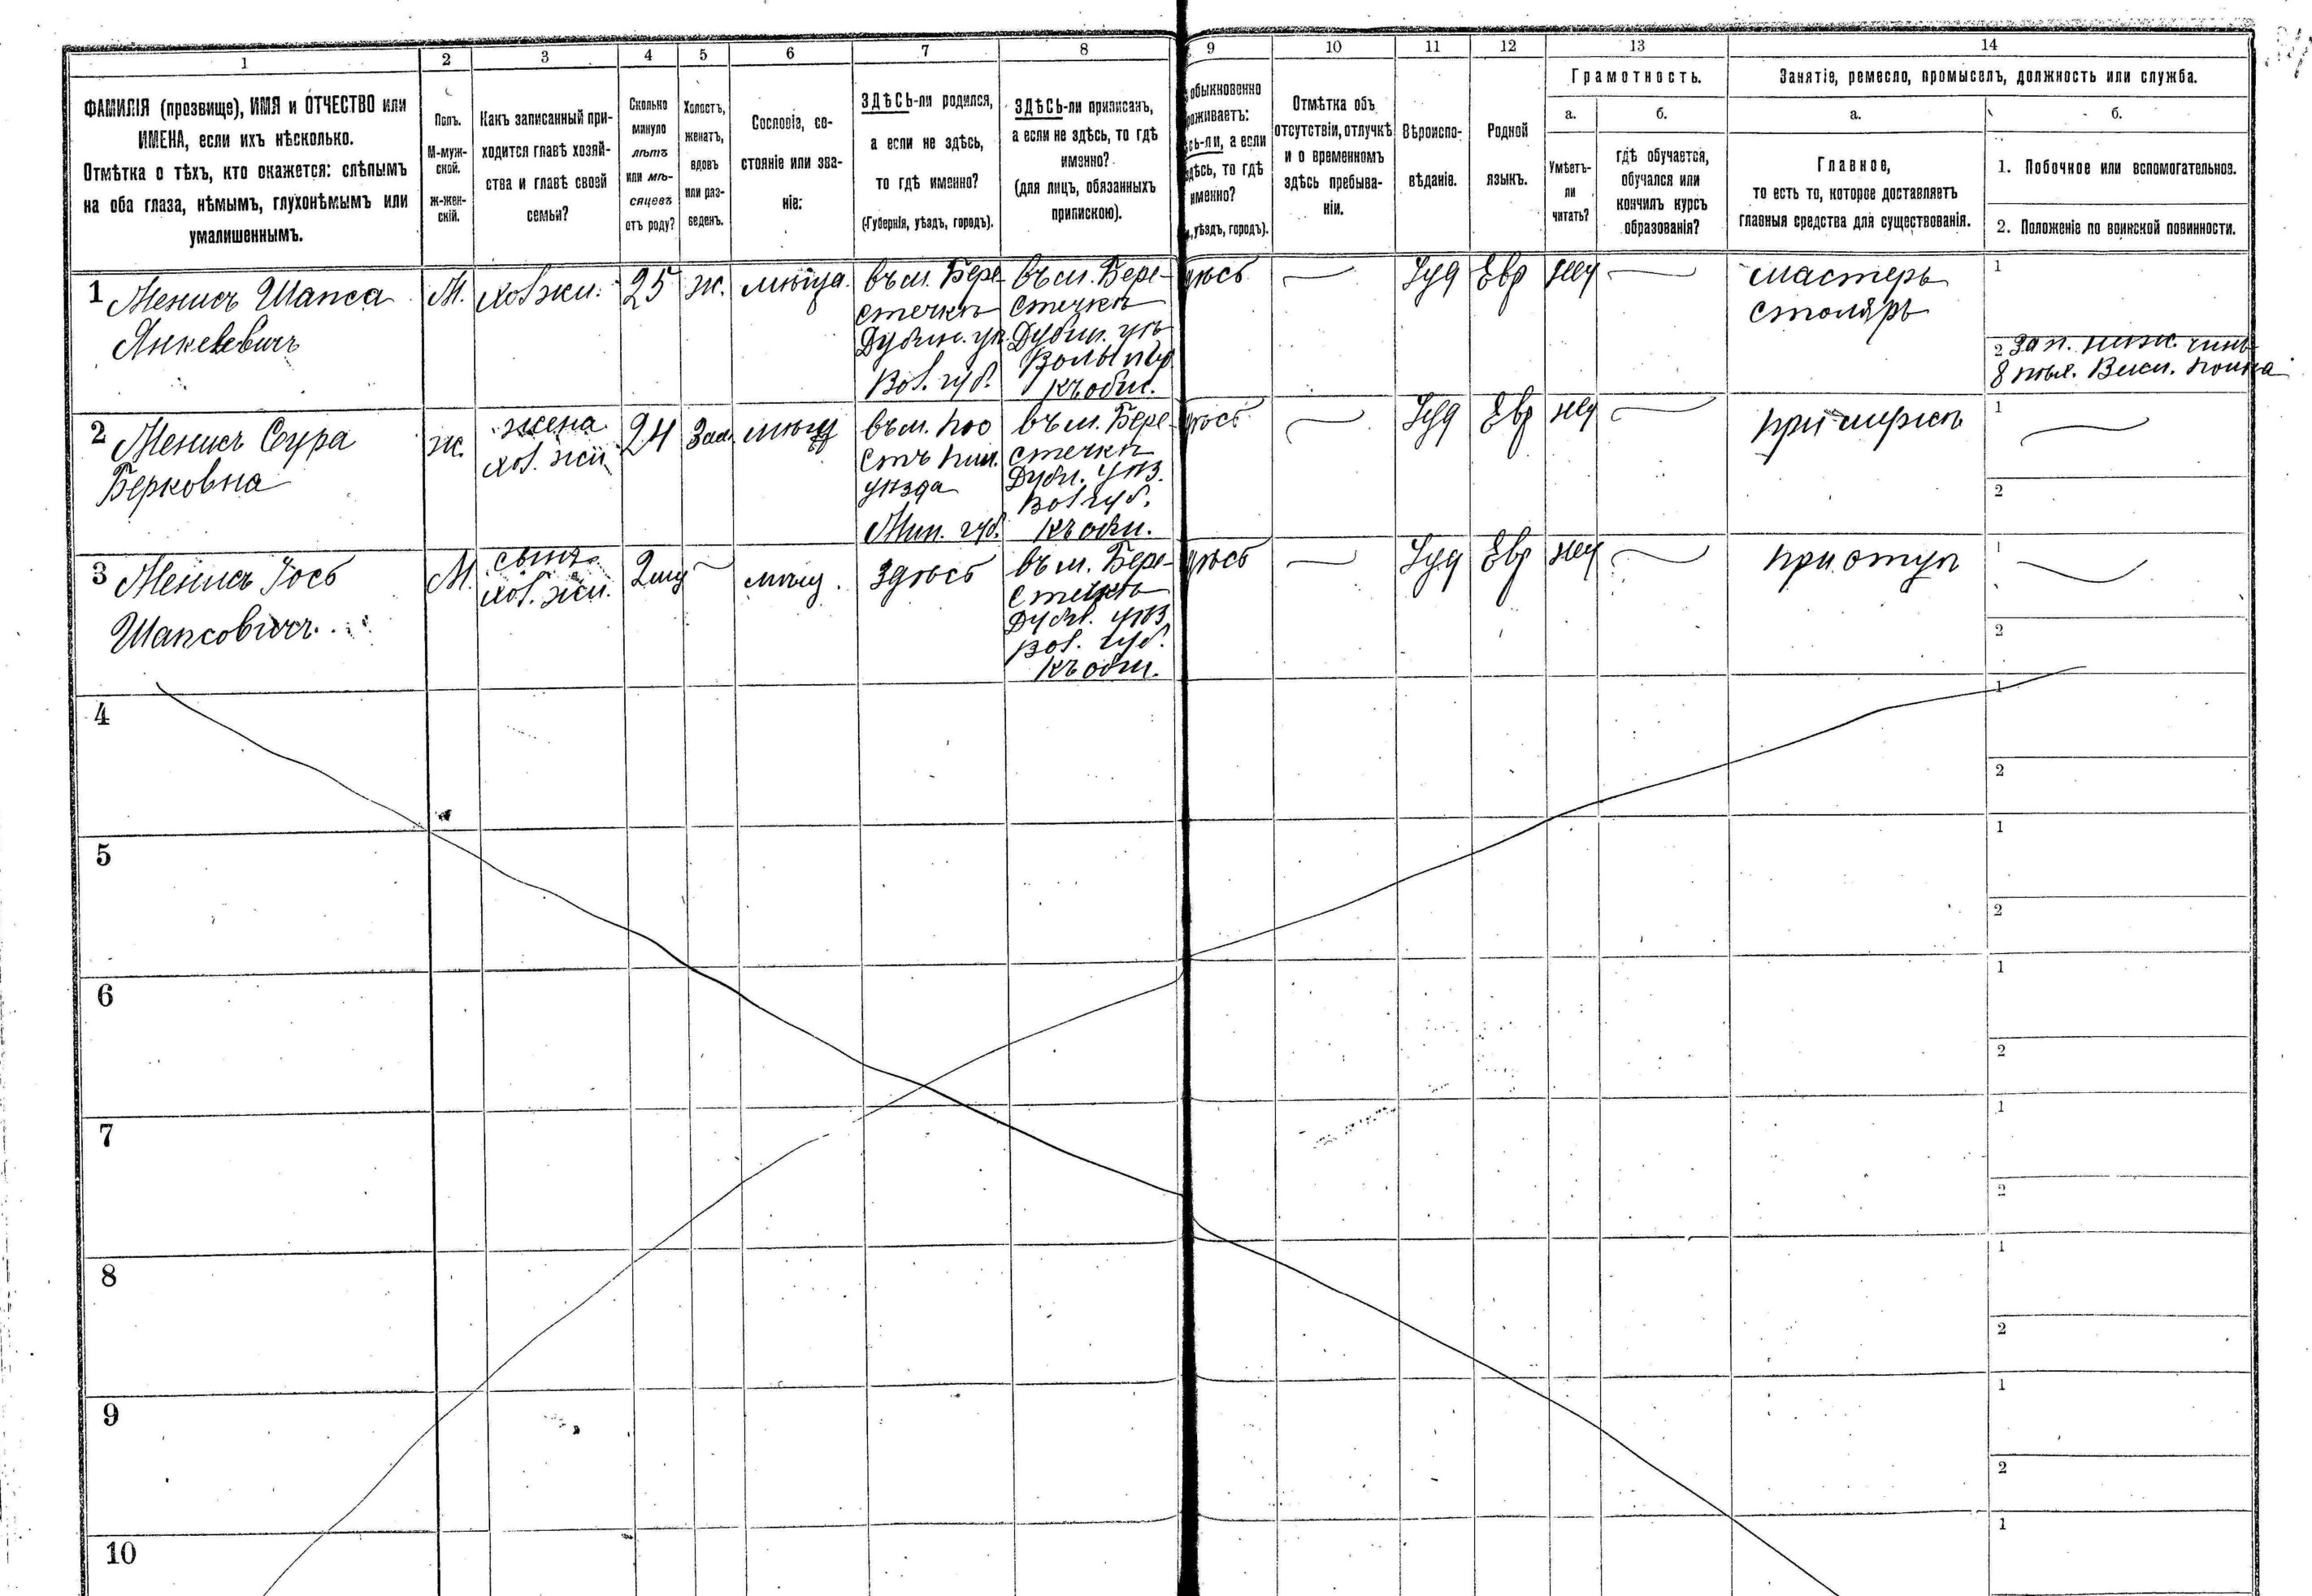 1 2 3 4 5 6 7 8 9 10 11 12 13 14
ФАМИЛІЯ (прозвище), ИМЯ и ОТЧЕСТВО или
ИМЕНА, если ихъ нѣсколько.
Отмѣтка о тѣхъ, кто окажется: слѣпымъ
на оба глаза, нѣмымъ, глухонѣмымъ или
умалишеннымъ.
Полъ.
М-муж-
ской.
ж-жен-
скій.
Какъ записанный при-
ходится главѣ хозяй-
ства и главѣ своей
семьи?
Сколько
минуло
лѣтъ
или мѣ-
сяцевъ
отъ роду?
Холостъ,
женатъ,
вдовъ
или раз-
веденъ.
Сословіе, со-
стояніе или зва-
ніе:
ЗДѢСЬ-ли родился,
а если не здѣсь,
то гдѣ именно?
(Губернія, уѣздъ, городъ).
ЗДѢСЬ-ли приписанъ,
а если не здѣсь, то гдѣ
именно?
(для лицъ, обязанныхъ
припискою).
обыкновенно
оживаетъ:
сь-ли, а если
здѣсь, то гдѣ
именно?
, уѣздъ, городъ).
Отмѣтка объ
отсутствіи, отлучкѣ
и о временномъ
здѣсь пребыва-
ніи.
Вѣроиспо-
вѣданіе.
Родной
языкъ.
Грамотность.
а.
Умѣетъ-
ли
читать?
б.
гдѣ обучается,
обучался или
кончилъ курсъ
образованія?
Занятіе, ремесло, промыселъ, должность или служба.
а.
Главное,
то есть то, которое доставляетъ
главныя средства для существованія.
б.
1. Побочное или вспомогательное.
2. Положеніе по воинской повинности.
1 Менисъ Шапса
Янкелевичъ
М.
хоз жи.
25
ж.
мѣща.
въ м. Бере-
стечкѣ
Дубин. уѣ.
Вол. губ.
въ м. Бере-
стечкѣ
Дубин. уѣ
Волы гу
къ общ.
здѣсь
Іуд
Евр
нѣ
мастеръ
столяръ
1
2 Зап. ниж. чинъ
2 Менисъ Сура
Берковна
ж.
жена
хоз. жи
24
Зам.
мѣщ
въ м.
уѣзда
Мин. губ.
въ м. Бере-
стечкѣ
Дубн. уѣз.
Вол губ.
къ общ.
здѣсь
Іуд
Евр
нѣ
при мужѣ
1
2
3 Менисъ Іось
Шапсовичъ
М.
сынъ
хоз. жи.
мѣщ.
здѣсь
въ м. Бере-
стечкѣ
Дубн. уѣз
Вол. губ.
къ общ.
здѣсь
Іуд
Евр
нѣ
при отцѣ
1
2
4
1
2
5
1
2
6
1
2
7
1
2
8
1
2
9
1
2
10
1